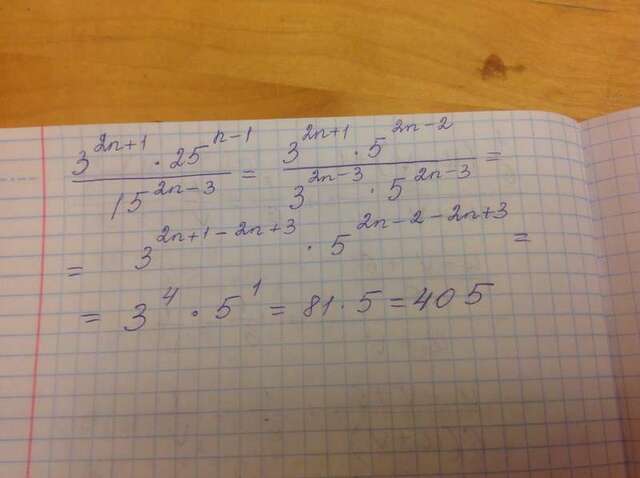 3^{2n+1} · 25^{n-1} / 15^{2n-3} = 3^{2n+1} · 5^{2n-2} / 3^{2n-3} · 5^{2n-3} =
= 3^{2n+1-2n+3} · 5^{2n-2-2n+3} =
= 3^4 · 5^1 = 81 · 5 = 405